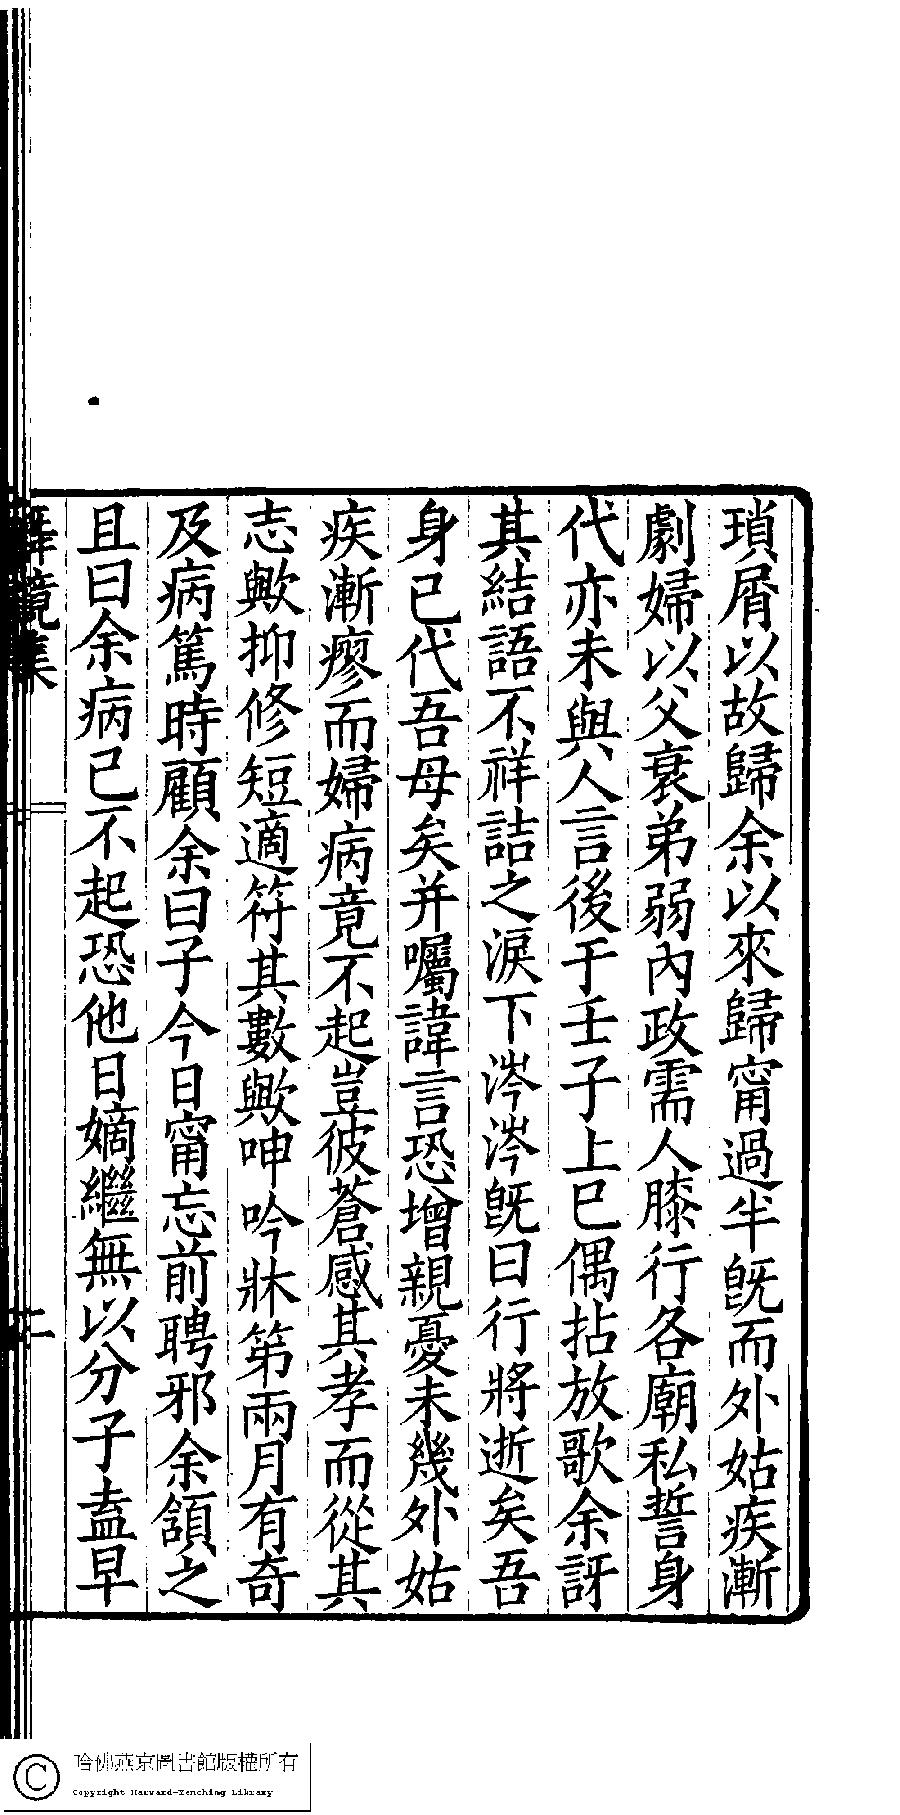 瑣屑以故歸余以來歸甯過半既而外姑疾漸
劇婦以父衰弟弱內政需人膝行各廟私誓身
代亦未與人言後于壬子上巳偶拈放歌余訝
其結語不祥詰之淚下涔涔既曰行將逝矣吾
身已代吾母矣并囑諱言恐增親憂未幾外姑
疾漸瘳而婦病竟不起豈彼蒼感其孝而從其
志歟抑修短適符其數歟呻吟牀第兩月有奇
及病篤時顧余曰子今日甯忘前聘邪余頷之
且曰余病已不起恐他日嫡繼無以分子盍早
鏡集
哈佛燕京圖書館版權所有
Copyright Harvard-Yenching Library